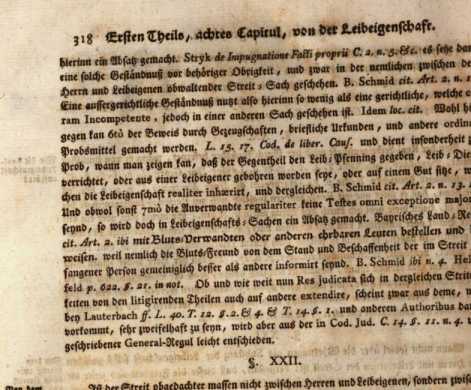 318 Ersten Theils, achtes Capitul, von der Leibeigenschaft.
hierinn ein Absatz gemacht. Stryk de Impugnatione Facti proprii C. 2. n. 5. &c. es sehe dan
eine solche Geständnuß vor behöriger Obrigkeit, und zwar in der nemlichen zwischen de
Herrn und Leibeigenen obwaltender Streit-Sach geschehen. B. Schmid cit. Art. 2. n.
Eine aussergerichtliche Geständnuß nutzt also hierinn so wenig als eine gerichtliche, welche c
ram Incompetente, jedoch in einer anderen Sach geschehen ist. Idem loc. cit. Wohl hi
gegen kan 6tò der Beweis durch Gezeugschaften, briefliche Urkunden, und andere ordina
Probsmittel gemacht werden. L. 15. 17. Cod. de liber. Caus. und dient insonderheit z
Prob, wann man zeigen kan, daß der Gegentheil den Leib-Pfenning gegeben, Leib-Die
verrichtet, oder aus einer Leibeigener gebohren worden seye, oder auf einem Gut sitze, w
chen die Leibeigenschaft realiter inhæriert, und dergleichen. B. Schmid cit. Art. 2. n. 13.
Und obwol sonst 7mò die Anverwandte regulariter keine Testes omni exceptione major
seynd, so wird doch in Leibeigenschafts-Sachen ein Absatz gemacht. Bayrisches Land-R
cit. Art. 2. ibi mit Bluts-Verwandten oder anderen ehrbaren Leuten bestellen und
weisen. weil nemlich die Bluts-Freund von dem Stand und Beschaffenheit der im Streit
fangener Person gemeiniglich besser als andere informirt seynd. B. Schmid ibi n. 4. Hel
feld p. 622. §. 21. in not. Ob und wie weit nun Res judicata sich in dergleichen Streit
keiten von den litigirenden Theilen auch auf andere extendire, scheint zwar aus deme, w
bey Lauterbach ff. L. 40. T. 12. §. 2. & 4. & T. 14. §. 1. und anderen Authoribus dar
vorkommt, sehr zweifelhaft zu seyn, wird aber aus der in Cod. Jud. C. 14. §. 11. n. 4. v
geschriebener General-Regul leicht entschieden.
§. XXII.
der Streit obgedachter massen nicht zwischen Herren und Leibeigenen, sondern zwis